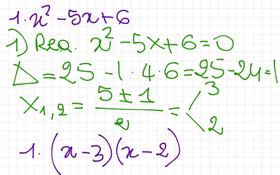 1. x² - 5x + 6
1) Rea. x² - 5x + 6 = 0
Δ = 25 - 1 · 4 · 6 = 25 - 24 = 1
x₁,₂ = (5 ± 1) / 2 = < 3 2
1. (x - 3)(x - 2)